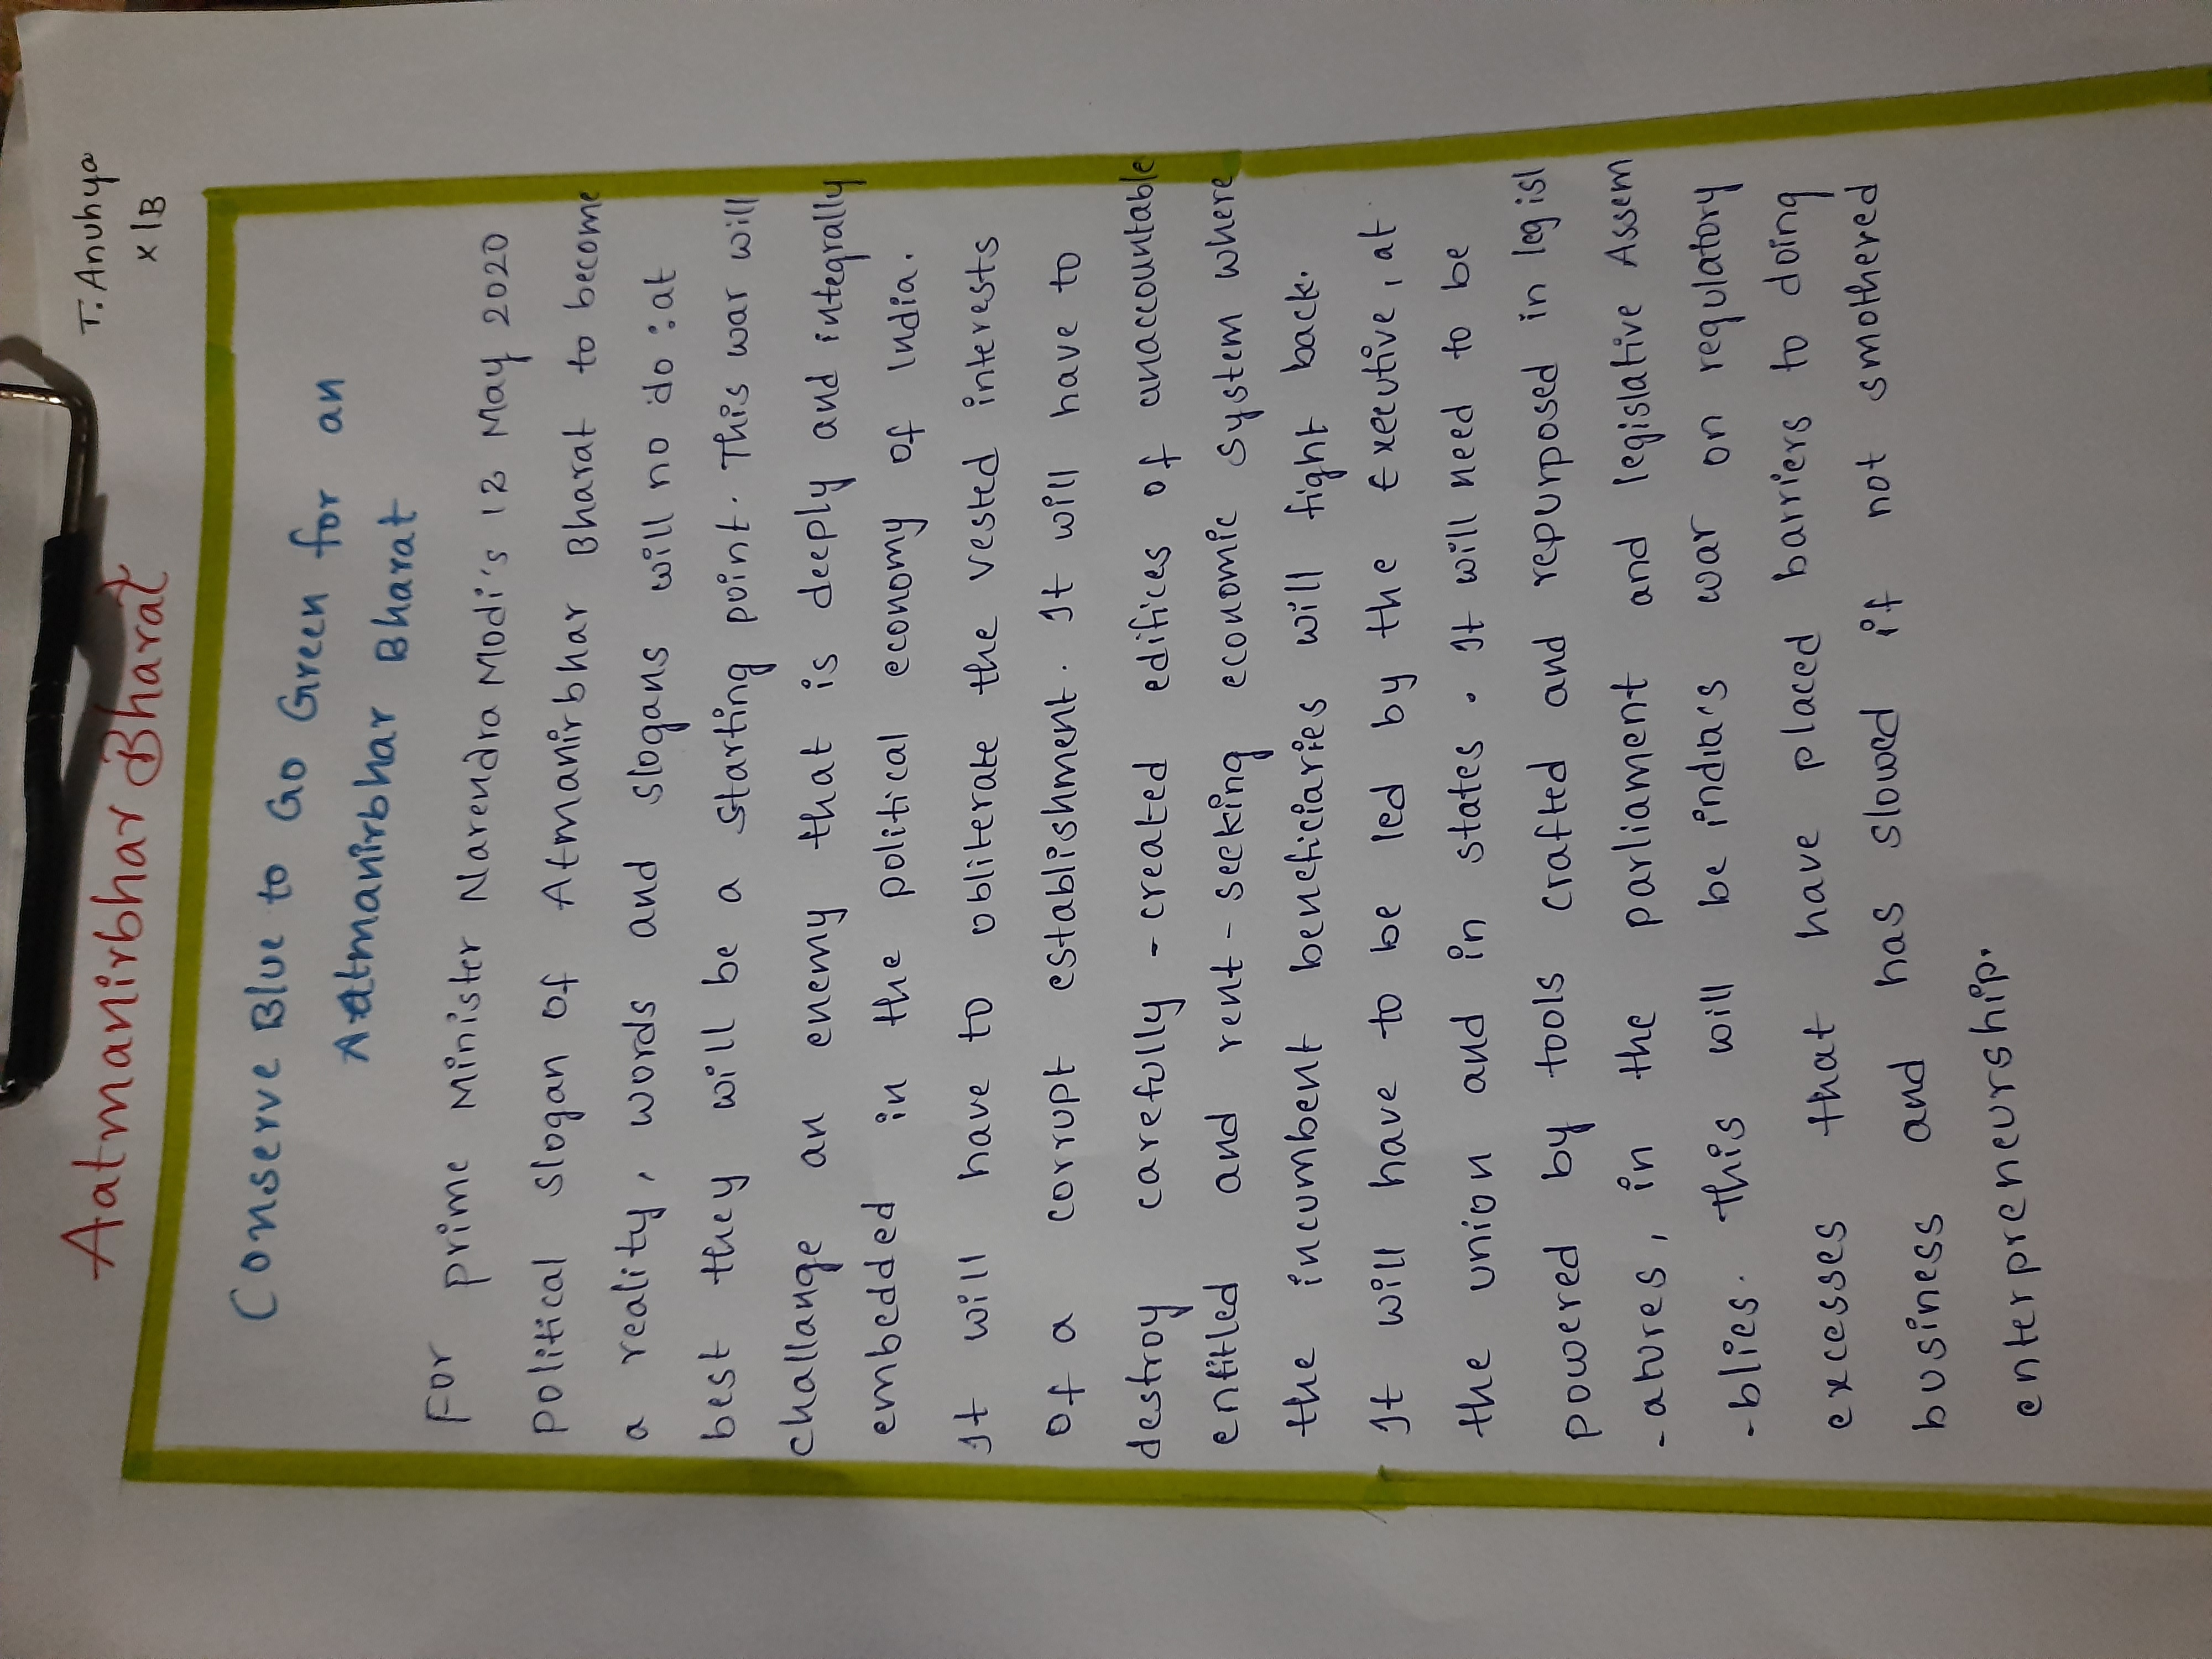 Aatmanirbhar Bharat
T. Anuhya
X 1B
Conserve Blue to Go Green for an
Aatmanirbhar Bharat
For prime Minister Narendra Modi's 12 May 2020
political slogan of Atmanirbhar Bharat to become
a reality, words and slogans will no do : at
best they will be a starting point. This war will
challange an enemy that is deeply and integrally
embedded in the political economy of India.
It will have to obliterate the vested interests
of a corrupt establishment. It will have to
destroy carefully - created edifices of unaccountable
entitled and rent - seeking economic system where
the incumbent beneficiaries will fight back.
It will have to be led by the Executive, at
the union and in states. It will need to be
powered by tools crafted and repurposed in legisl
- atures, in the parliament and legislative Assem
- blies. This will be india's war on regulatory
excesses that have placed barriers to doing
business and has slowed if not smothered
enterpreneurship.